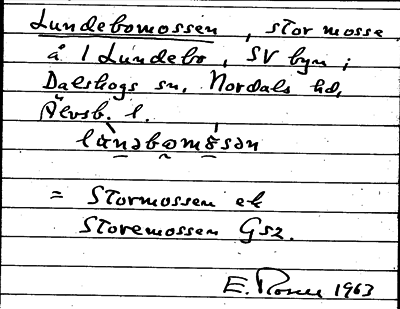 Lundebomossen, stor mosse
å 1 Lundebo, SV byn;
Dalskogs sn, Nordals hd,
Älvsb. l.
= Stormossen ek
Storemossen Gsz.
E. 1963